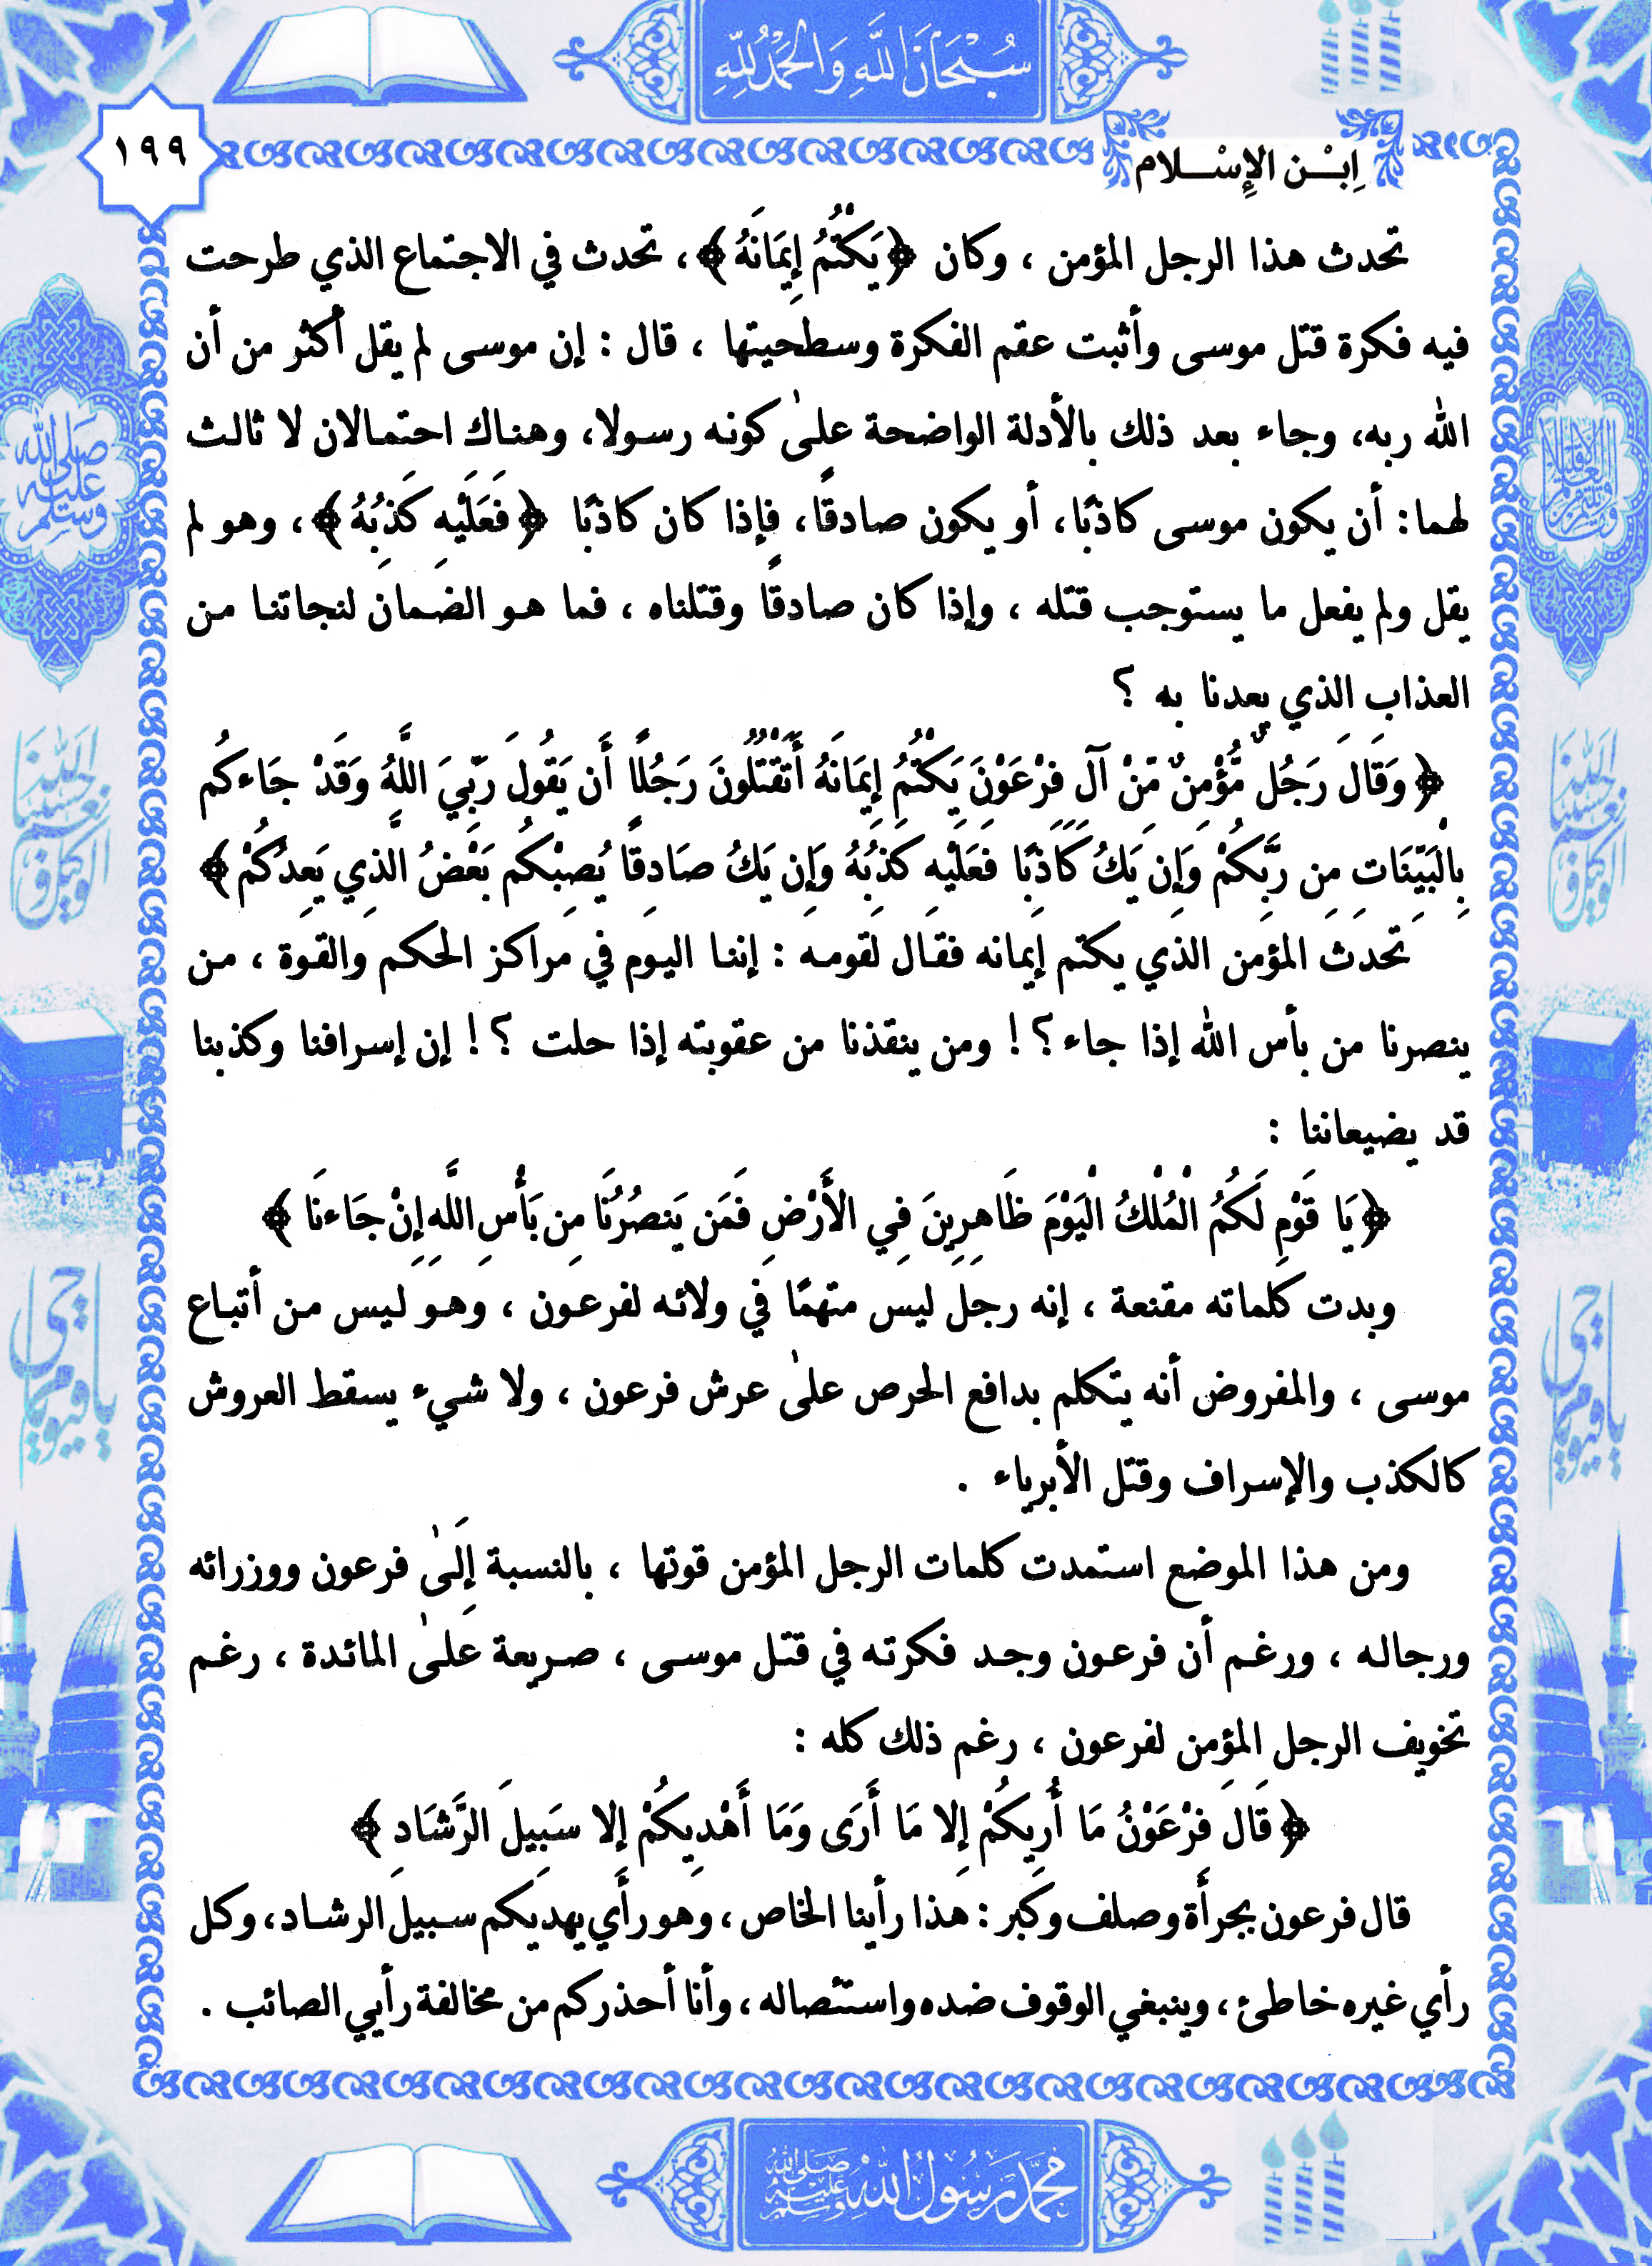 سُبْحَانَ اللَّهِ وَالْحَمْدُ لِلَّهِ
١٩٩
اِبْـن الإِسْـلام
تحدث هذا الرجل المؤمن ، وكان ﴿يَكْتُمُ إِيمَانَهُ﴾ ، تحدث في الاجتماع الذي طرحت
فيه فكرة قتل موسى وأثبت عقم الفكرة وسطحيتها ، قال : إن موسى لم يقل أكثر من أن
الله ربه، وجاء بعد ذلك بالأدلة الواضحة علىٰ كونه رسولا، وهناك احتمالان لا ثالث
لهما: أن يكون موسى كاذبًا، أو يكون صادقًا، فإذا كان كاذبًا ﴿ فَعَلَيْهِ كَذِبُهُ﴾ ، وهو لم
يقل ولم يفعل ما يستوجب قتله ، وإذا كان صادقًا وقتلناه ، فما هو الضمان لنجاتنا من
العذاب الذي يعدنا به ؟
﴿ وَقَالَ رَجُلٌ مُّؤْمِنٌ مِّنْ آلِ فِرْعَوْنَ يَكْتُمُ إِيمَانَهُ أَتَقْتُلُونَ رَجُلًا أَن يَقُولَ رَبِّيَ اللَّهُ وَقَدْ جَاءكُم
بِالْبَيِّنَاتِ مِن رَّبِّكُمْ وَإِن يَكُ كَاذِبًا فَعَلَيْهِ كَذِبُهُ وَإِن يَكُ صَادِقًا يُصِبْكُم بَعْضُ الَّذِي يَعِدُكُمْ ﴾
تحدث المؤمن الذي يكتم إيمانه فقال لقومه : إننا اليوم في مراكز الحكم والقوة ، من
ينصرنا من بأس الله إذا جاء ؟ ! ومن ينقذنا من عقوبته إذا حلت ؟ ! إن إسرافنا وكذبنا
قد يضيعاننا :
﴿ يَا قَوْمِ لَكُمُ الْمُلْكُ الْيَوْمَ ظَاهِرِينَ فِي الأَرْضِ فَمَن يَنصُرُنَا مِن بَأْسِ اللَّهِ إِنْ جَاءنَا ﴾
وبدت كلماته مقنعة ، إنه رجل ليس متهمًا في ولائه لفرعون ، وهو ليس من أتباع
موسى ، والمفروض أنه يتكلم بدافع الحرص علىٰ عرش فرعون ، ولا شيء يسقط العروش
كالكذب والإسراف وقتل الأبرياء .
ومن هذا الموضع استمدت كلمات الرجل المؤمن قوتها ، بالنسبة إِلَىٰ فرعون ووزرائه
ورجاله ، ورغم أن فرعون وجد فكرته في قتل موسى ، صريعة عَلىٰ المائدة ، رغم
تخويف الرجل المؤمن لفرعون ، رغم ذلك كله :
﴿ قَالَ فِرْعَوْنُ مَا أُرِيكُمْ إِلا مَا أَرَى وَمَا أَهْدِيكُمْ إِلا سَبِيلَ الرَّشَادِ ﴾
قال فرعون بجرأة وصلف وكبر : هذا رأينا الخاص ، وهو رأي يهديكم سبيل الرشاد ، وكل
رأي غيره خاطئ ، وينبغي الوقوف ضده واستئصاله ، وأنا أحذركم من مخالفة رأيي الصائب .
صلى الله عليه وسلم
حسبنا الله ونعم الوكيل
حسبنا الله ونعم الوكيل
يا حي يا قيوم
يا حي يا قيوم
مُحَمَّد رَسُولُ اللَّهِ صلى الله عليه وسلم